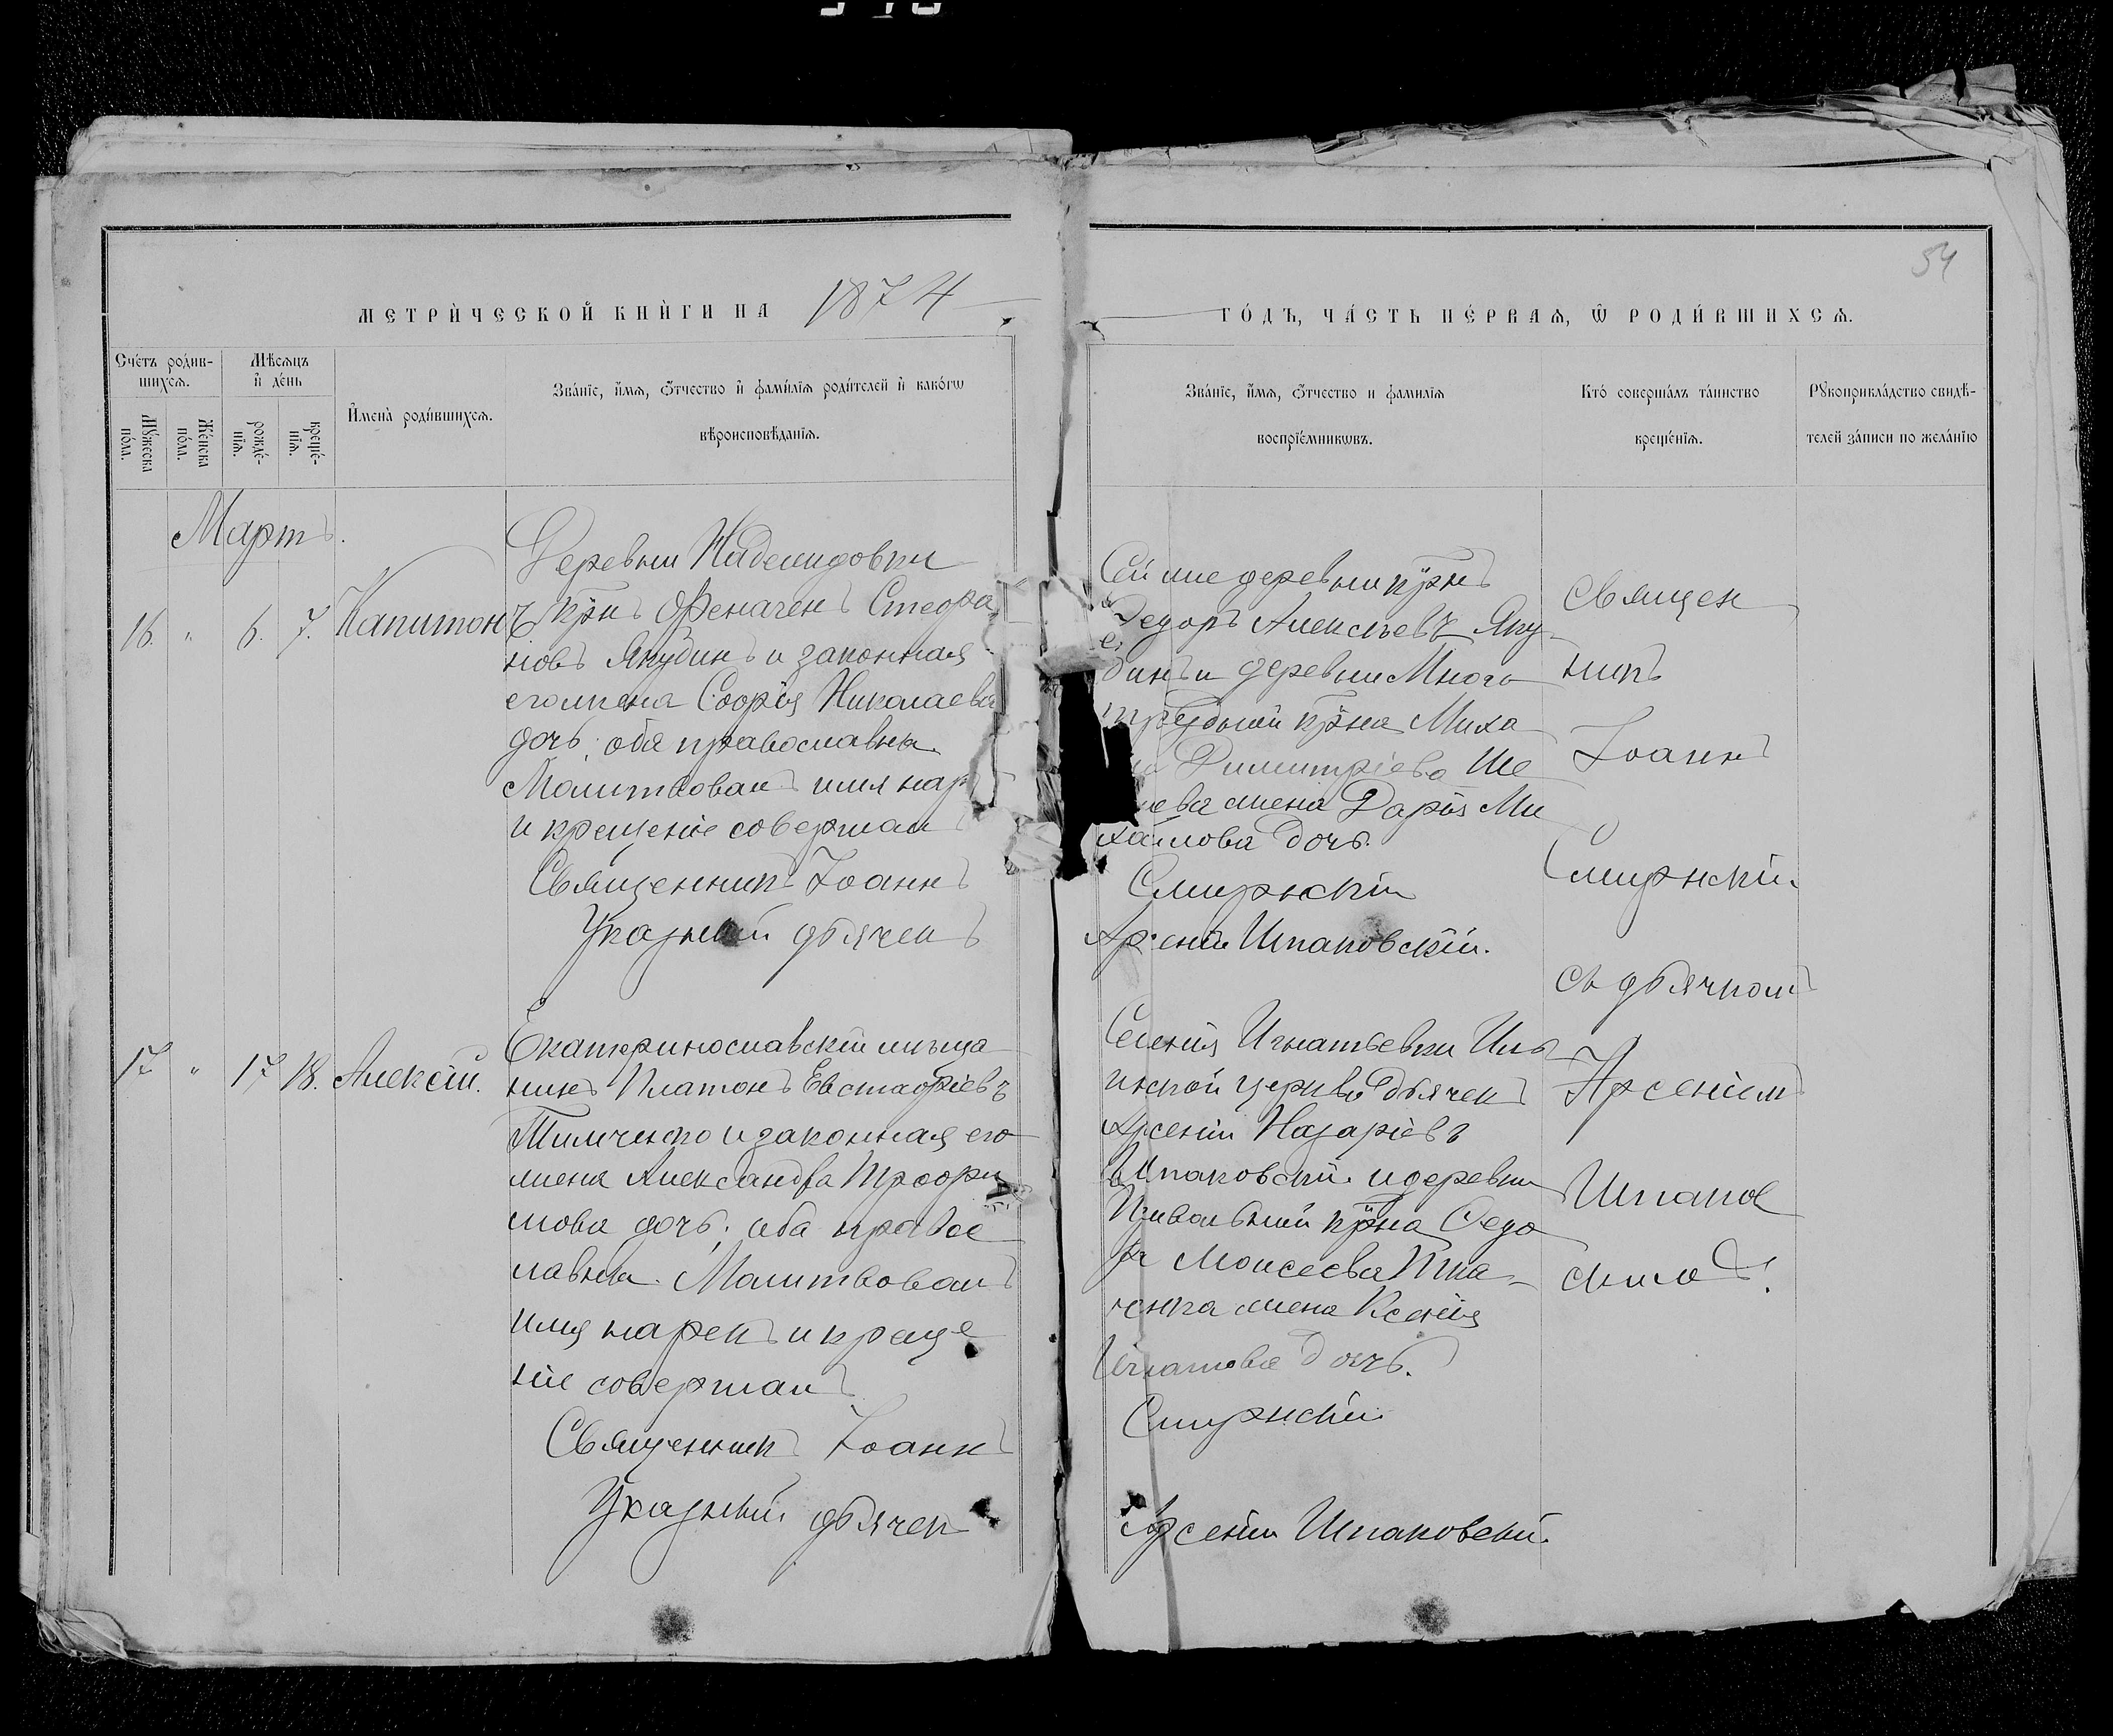 54
МЕТРИ́ЧЕСКОЙ КНИ́ГИ НА 1874
ГО́ДЪ, ЧА́СТЬ ПЕ́РВАѦ, Ѿ РОДИ́ВШИХСѦ.
Сче́тъ роди́в-
шихсѧ.
Мѣ́сѧцъ
и҆ де́нь
Мꙋ́жеска
по́ла.
Же́нска
по́ла.
рожде́-
нїѧ.
креще́-
нїѧ.
И҆мена̀ роди́вшихсѧ.
Зва́нїе, и҆́мѧ, ѻ҆́тчество и҆ фами́лїѧ роди́телей и҆ како́гѡ
вѣроисповѣ́данїѧ.
Зва́нїе, и҆́мѧ, ѻ҆́тчество и фами́лїѧ
воспрїе́мникѡвъ.
Кто̀ соверша́лъ та́инство
креще́нїѧ.
Рꙋкоприкла́дство свидѣ́-
телей за́писи по жела́нїю
Мартъ.
16. " 6. 7. Капитонъ
Деревни
крнъ Стефа
новъ Якубинъ и законная
его жена Софія Николаева
дочь; оба православны.
Молитвовалъ имя нар
и крещеніе совершал
Священникъ Іоаннъ
Указный дьячекъ
Сей же деревни крнъ
Федоръ Алексѣевъ Яку
бинъ и деревни Много
трудный крна Миха
Димитріева Ше
лева жена Дарія Ми
хайлова дочь.
Смирнскій
Арсеній Шпаковскій.
Священ
никъ
Іоаннъ
Смирнскій.
съ дьячкомъ
Арсеніем
Шпаков
скимъ.
17 " 17 18. Алексій.
Екатеринославскій мѣща
нинъ Платонъ Евстафіевъ
Тимченко и законная его
жена Александра Трофи
мова дочь; оба правос
лавны. Молитвовалъ
имя нарекъ и креще
ніе совершалъ
Священникъ Іоаннъ
Указный дьячек
Селенія Игнатьевки Иль
инской церкви дьячекъ
Арсеній Назаріевъ
Шпаковскій и деревни
Привольной крна Федо
ра Моисеева Тка
ченка жена Ксенія
Игнатова дочь.
Смирнскій
Арсеній Шпаковскій